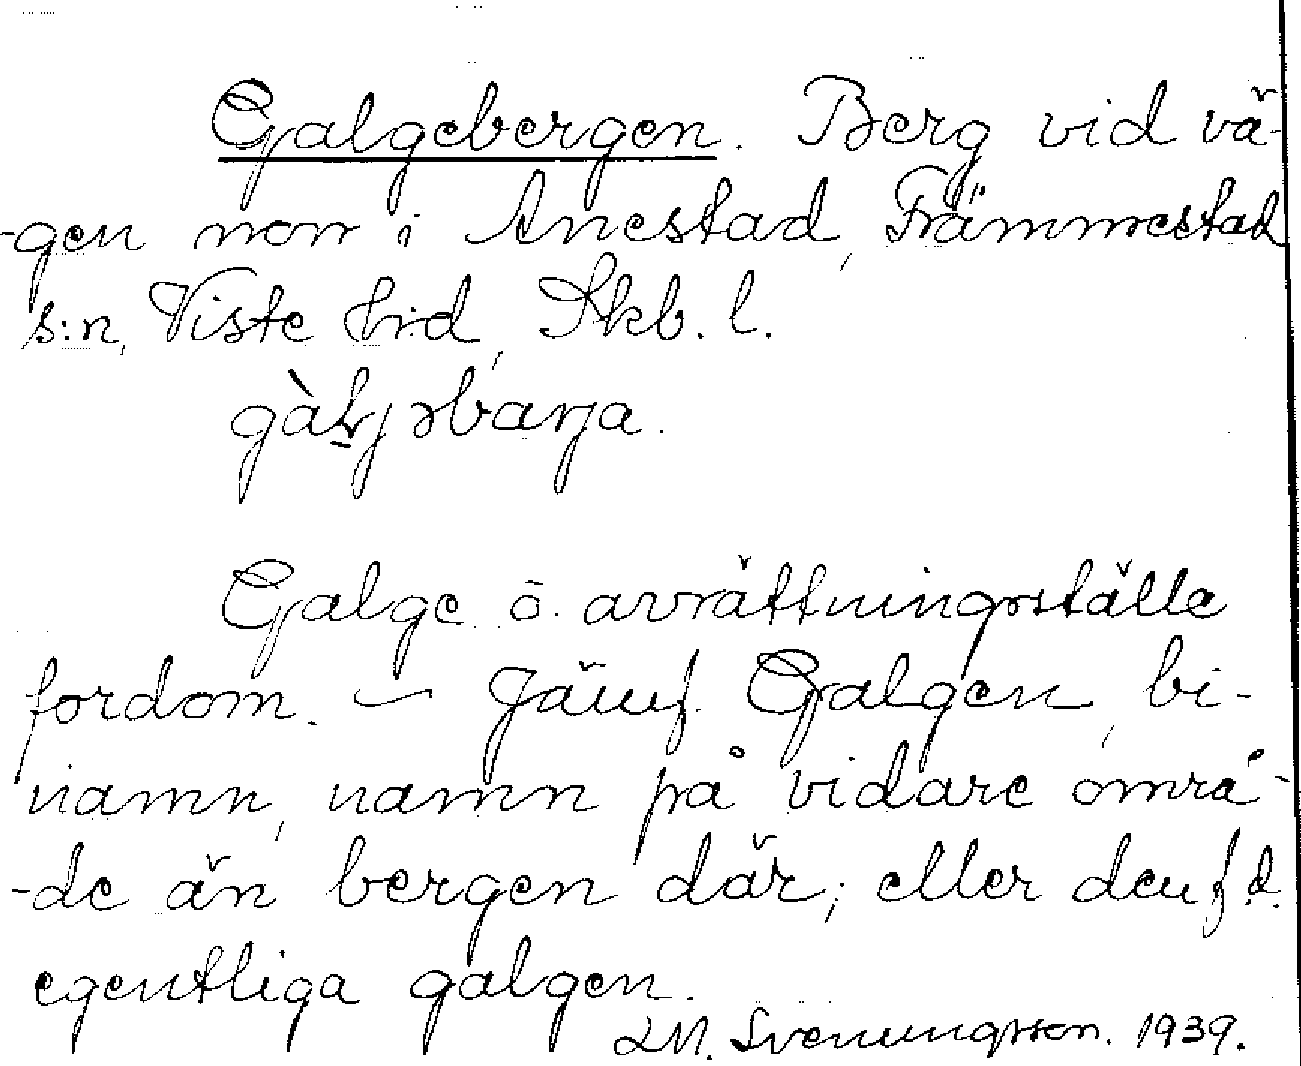 Galgebergen. Berg vid vä-
-gen norr i Anestad, Främmestad
s:n, Viste hrd, Skb. l.
gàłjəbarja.
Galge o. avrättningsställe
fordom. — Jämf. Galgen, bi-
namn, namn på vidare områ-
-de än bergen där; eller den f.d.
egentliga galgen.
LM. Svenungsson. 1939.